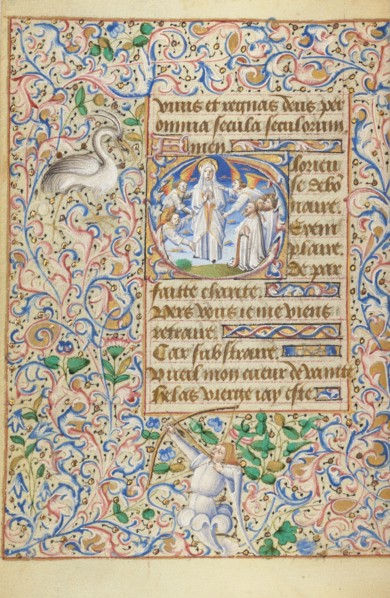 vivis et regnas deus per
omnia secula seculorum.
Amen
Glorieu
se de bō
naire.
Exem
plaire.
De par
faitte charite.
Vers vous ie me viens
retraire.
Car substraire.
Vueil mon cueur de vanite
helas vierge iay este